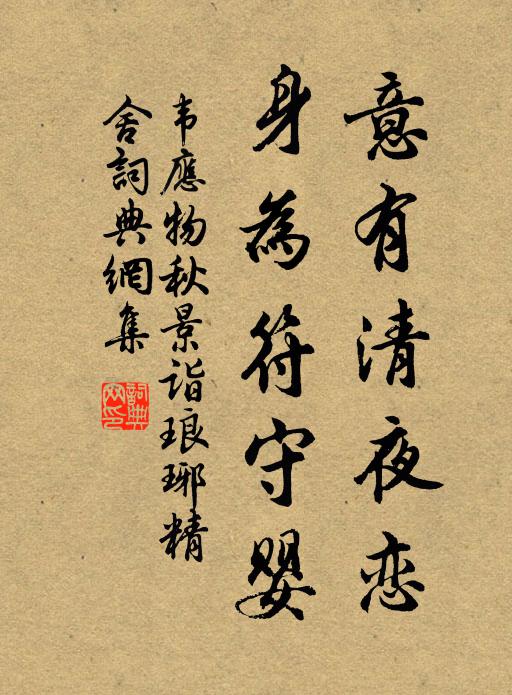 意有清夜恋
身為符守嬰
韦應物秋景詣琅琊精
舍詞典網集
詞典
网印